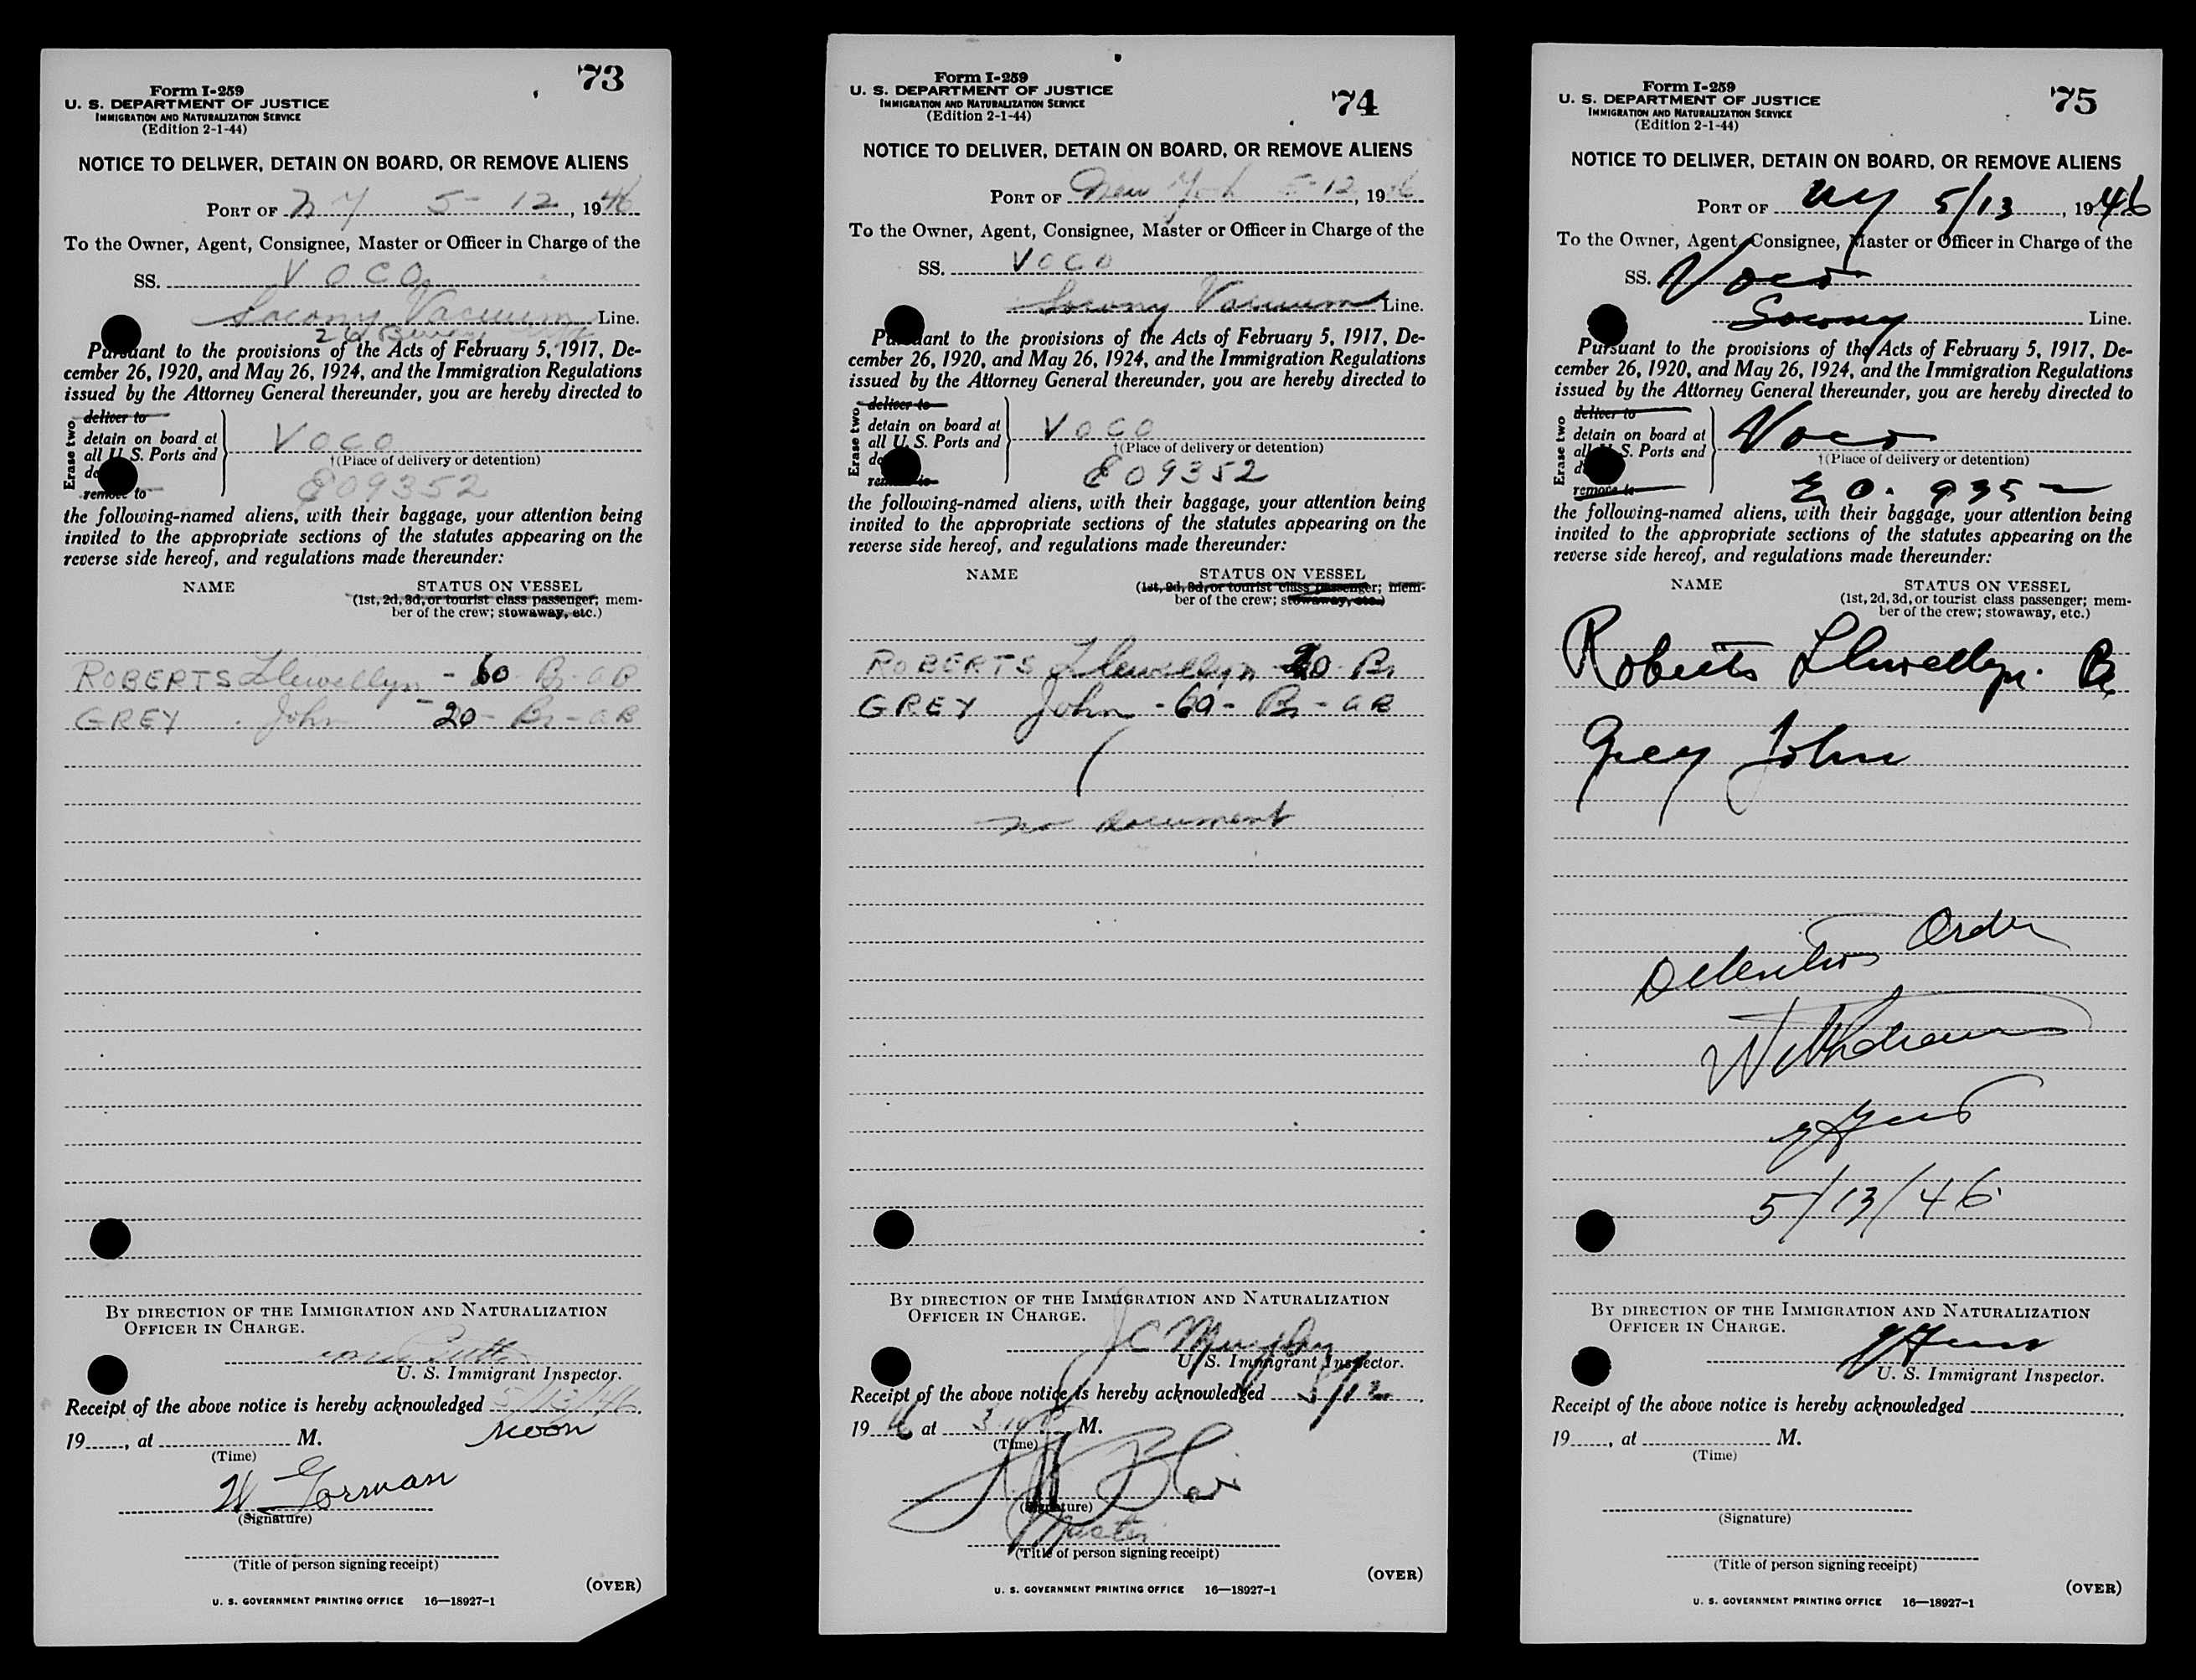 73
Form I-259
U. S. DEPARTMENT OF JUSTICE
IMMIGRATION AND NATURALIZATION SERVICE
(Edition 2-1-44)
NOTICE TO DELIVER, DETAIN ON BOARD, OR REMOVE ALIENS
PORT OF NY 5-12, 1946
To the Owner, Agent, Consignee, Master or Officer in Charge of the
SS. VOCO
Socony Vacuum Line.
Pursuant to the provisions of the Acts of February 5, 1917, De-
cember 26, 1920, and May 26, 1924, and the Immigration Regulations
issued by the Attorney General thereunder, you are hereby directed to
Erase two
deliver to
detain on board at
all U. S. Ports and
remove to
VOCO
†(Place of delivery or detention)
EO9352
the following-named aliens, with their baggage, your attention being
invited to the appropriate sections of the statutes appearing on the
reverse side hereof, and regulations made thereunder:
NAME STATUS ON VESSEL
(1st, 2d, 3d, or tourist class passenger; mem-
ber of the crew; stowaway, etc.)
ROBERTS Llewellyn - 60 Br - AB
GREY John - 20 - Br - AB
BY DIRECTION OF THE IMMIGRATION AND NATURALIZATION
OFFICER IN CHARGE.
U. S. Immigrant Inspector.
Receipt of the above notice is hereby acknowledged 5/13/46
19, at M. Noon
(Time)
W Gorman
(Signature)
(Title of person signing receipt)
(OVER)
U. S. GOVERNMENT PRINTING OFFICE 16—18927-1
74
Form I-259
U. S. DEPARTMENT OF JUSTICE
IMMIGRATION AND NATURALIZATION SERVICE
(Edition 2-1-44)
NOTICE TO DELIVER, DETAIN ON BOARD, OR REMOVE ALIENS
PORT OF New York 5-12, 1946
To the Owner, Agent, Consignee, Master or Officer in Charge of the
SS. VOCO
Socony Vacuum Line.
Pursuant to the provisions of the Acts of February 5, 1917, De-
cember 26, 1920, and May 26, 1924, and the Immigration Regulations
issued by the Attorney General thereunder, you are hereby directed to
Erase two
deliver to
detain on board at
all U. S. Ports and
VOCO
†(Place of delivery or detention)
EO9352
the following-named aliens, with their baggage, your attention being
invited to the appropriate sections of the statutes appearing on the
reverse side hereof, and regulations made thereunder:
NAME STATUS ON VESSEL
(1st, 2d, 3d, or tourist class passenger; mem-
ber of the crew; stowaway, etc.)
ROBERTS Llewellyn 20 Br
GREY John - 60 - Br - AB
no document
BY DIRECTION OF THE IMMIGRATION AND NATURALIZATION
OFFICER IN CHARGE.
JC Murphy
U. S. Immigrant Inspector.
Receipt of the above notice is hereby acknowledged 5/12
1946 at 3 M.
(Time)
Blair
(Signature)
Master
(Title of person signing receipt)
(OVER)
U. S. GOVERNMENT PRINTING OFFICE 16—18927-1
75
Form I-259
U. S. DEPARTMENT OF JUSTICE
IMMIGRATION AND NATURALIZATION SERVICE
(Edition 2-1-44)
NOTICE TO DELIVER, DETAIN ON BOARD, OR REMOVE ALIENS
PORT OF NY 5/13, 1946
To the Owner, Agent, Consignee, Master or Officer in Charge of the
SS. Voco
Socony Line.
Pursuant to the provisions of the Acts of February 5, 1917, De-
cember 26, 1920, and May 26, 1924, and the Immigration Regulations
issued by the Attorney General thereunder, you are hereby directed to
Erase two
deliver to
detain on board at
all U. S. Ports and
remove to
Voco
†(Place of delivery or detention)
E O. 9352
the following-named aliens, with their baggage, your attention being
invited to the appropriate sections of the statutes appearing on the
reverse side hereof, and regulations made thereunder:
NAME STATUS ON VESSEL
(1st, 2d, 3d, or tourist class passenger; mem-
ber of the crew; stowaway, etc.)
Roberts Llewellyn. Br
Grey John
Detention Order
Withdrawn
5/13/46
BY DIRECTION OF THE IMMIGRATION AND NATURALIZATION
OFFICER IN CHARGE.
U. S. Immigrant Inspector.
Receipt of the above notice is hereby acknowledged
19, at M.
(Time)
(Signature)
(Title of person signing receipt)
(OVER)
U. S. GOVERNMENT PRINTING OFFICE 16—18927-1